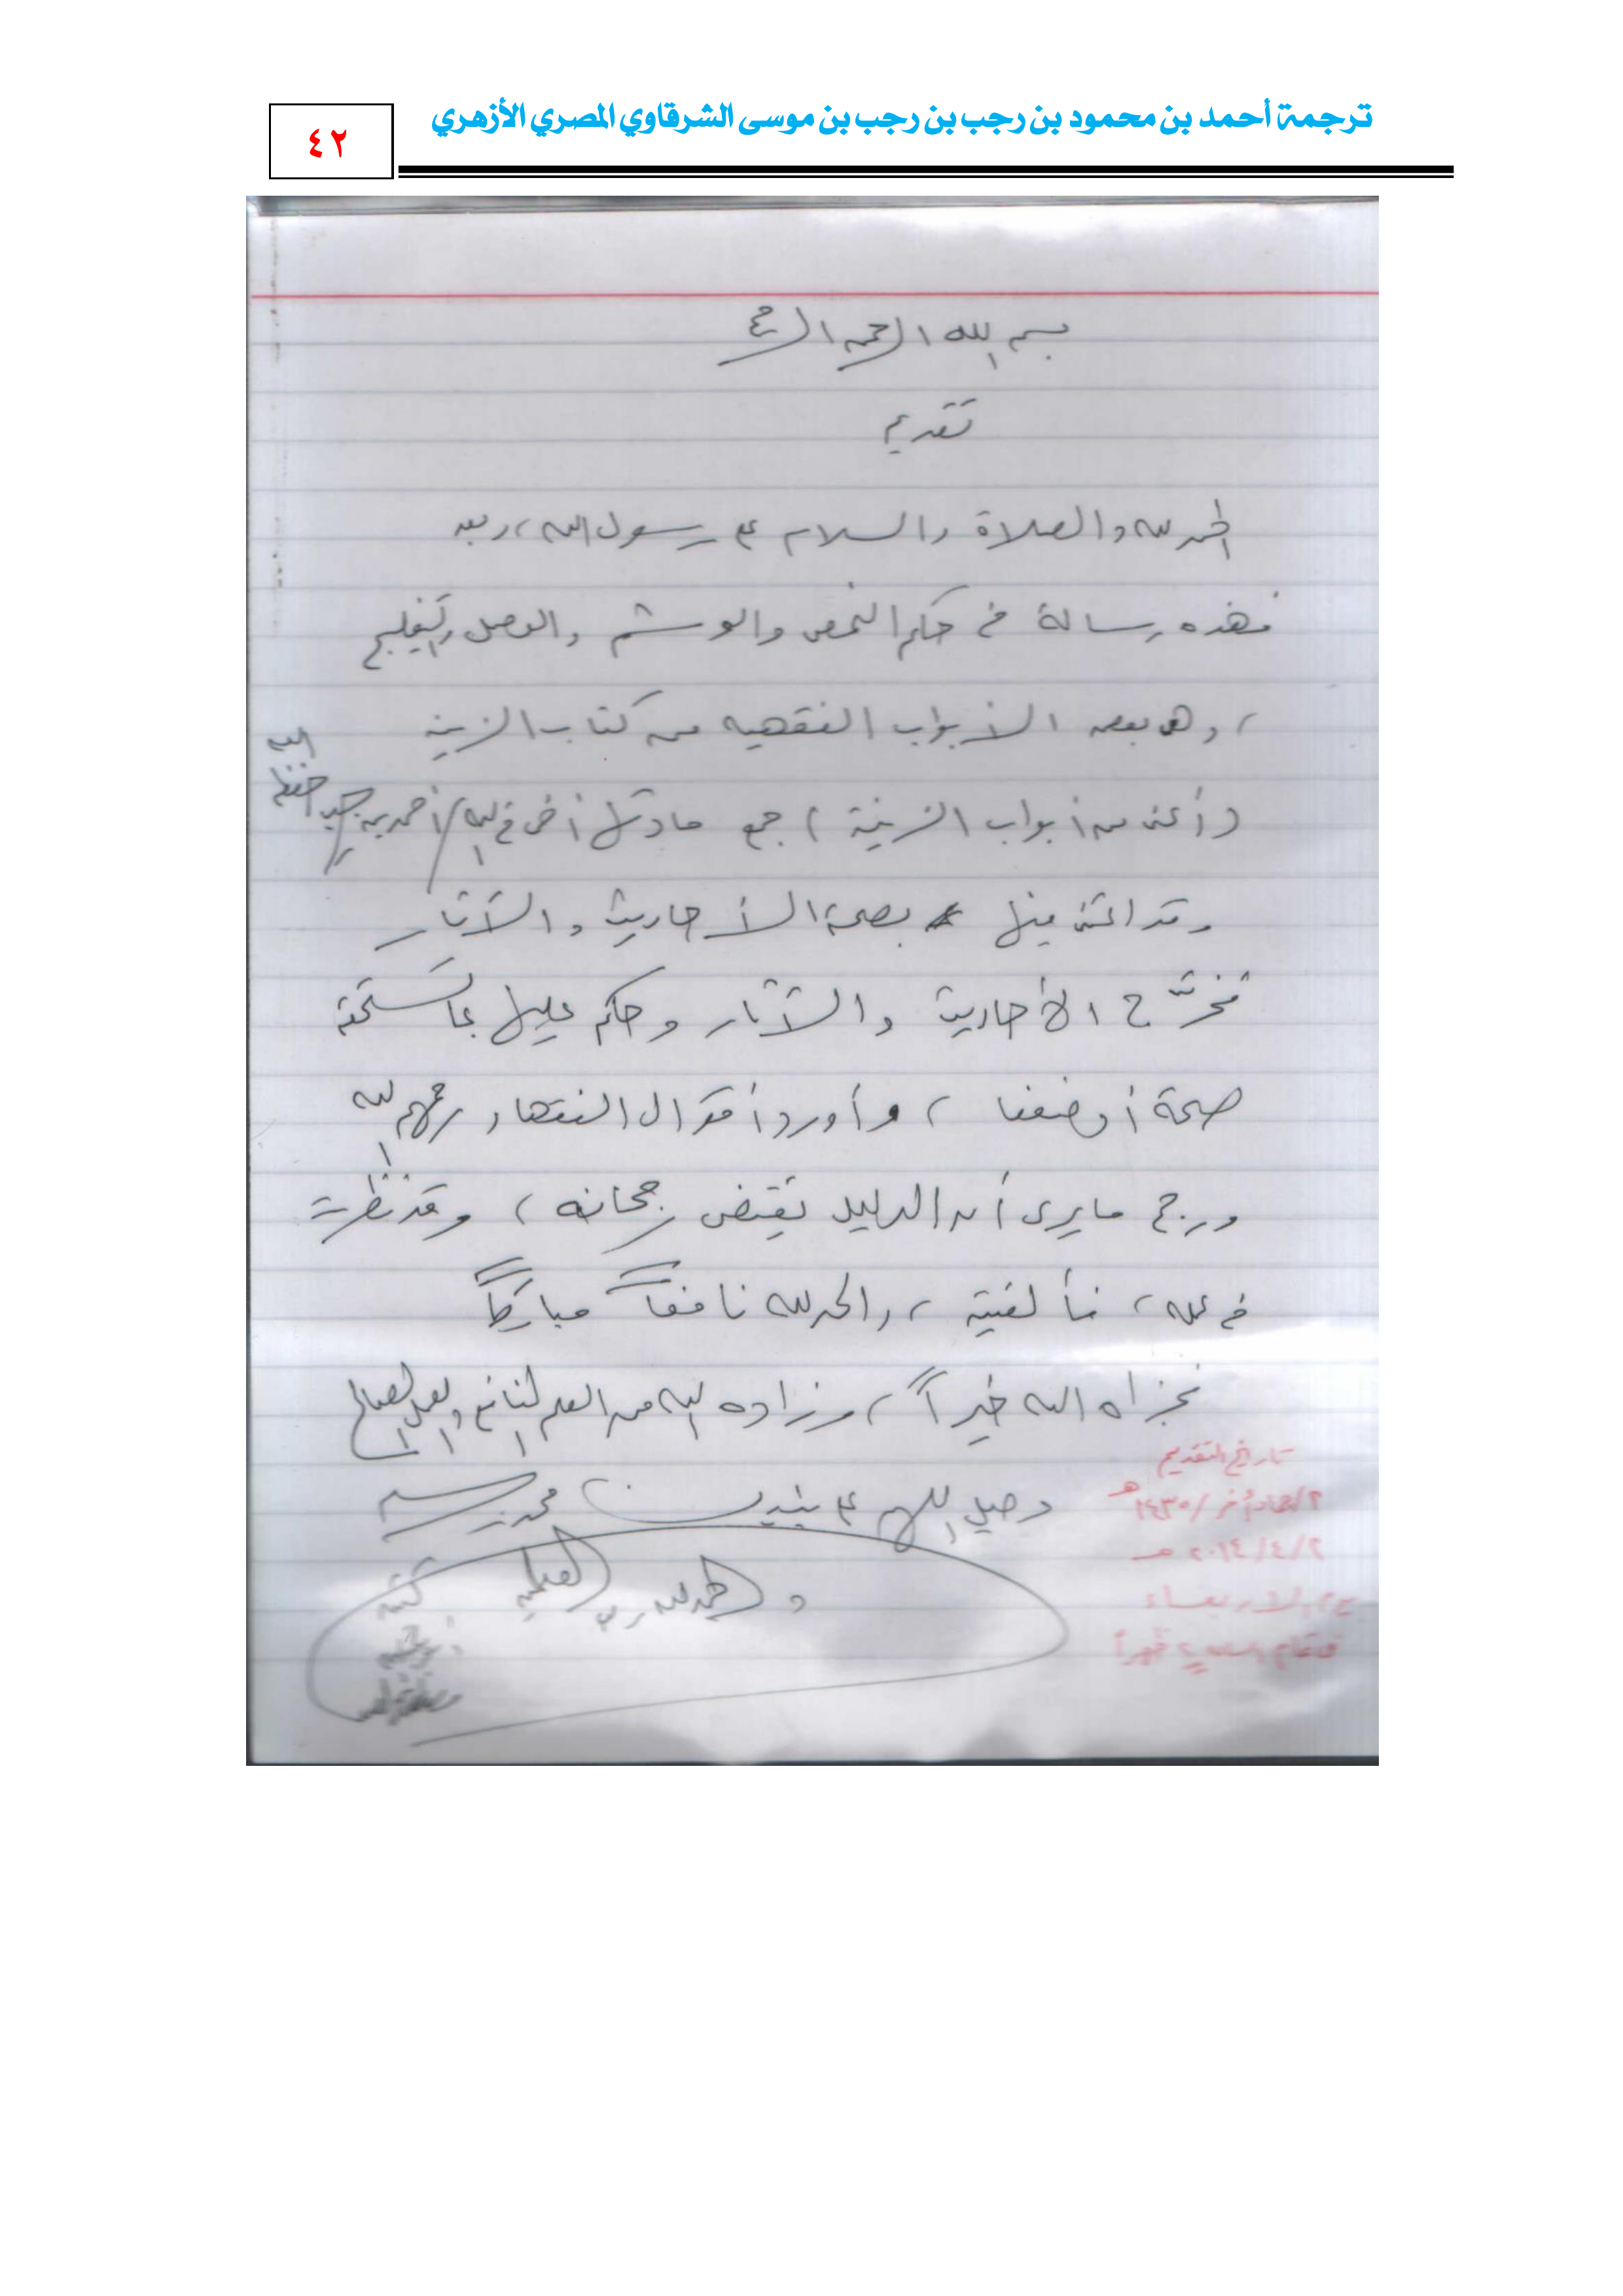 ترجمة أحمد بن محمود بن رجب بن رجب بن موسى الشرقاوي المصري الأزهري
٤٢
بسم الله الرحمن الرحيم
تقديم
الحمد لله والصلاة والسلام على رسول الله، وبعد
فهذه رسالة في حكم النمص والوشم والوصل والتفليج
، وهي بعض الأبواب الفقهيه من كتاب الزينه
(أعني من أبواب الزينة) جمع مادتها أخي في الله/ أحمد بن رجب حفظه الله
وقد اعتنى فيها بصحة الأحاديث والآثار
فخرَّج الأحاديث والآثار وحكم عليها بما تستحقه
صحة أو ضعفا، وأورد أقوال الفقهاء رحمهم الله
ورجح ما يرى أن الدليل يقتضي رجحانه، وقد نظرت
في عمله، فألفيته، والحمد لله نافعاً مباركاً
فجزاه الله خيراً، وزاده الله من العلم النافع والعمل الصالح
وصلِ اللهم على نبينا محمد وسلم
والحمد لله رب العالمين
كتبه
تاريخ التقديم
٢/جماد أخر/١٤٣٥هـ
٢/٤/٢٠١٤
الاربعاء
ظهراً